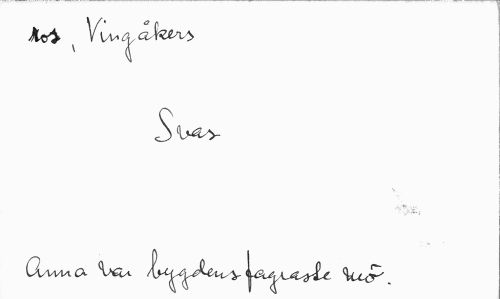 ros, Vingåkers
Svas
Anna var bygdens fagraste mö.